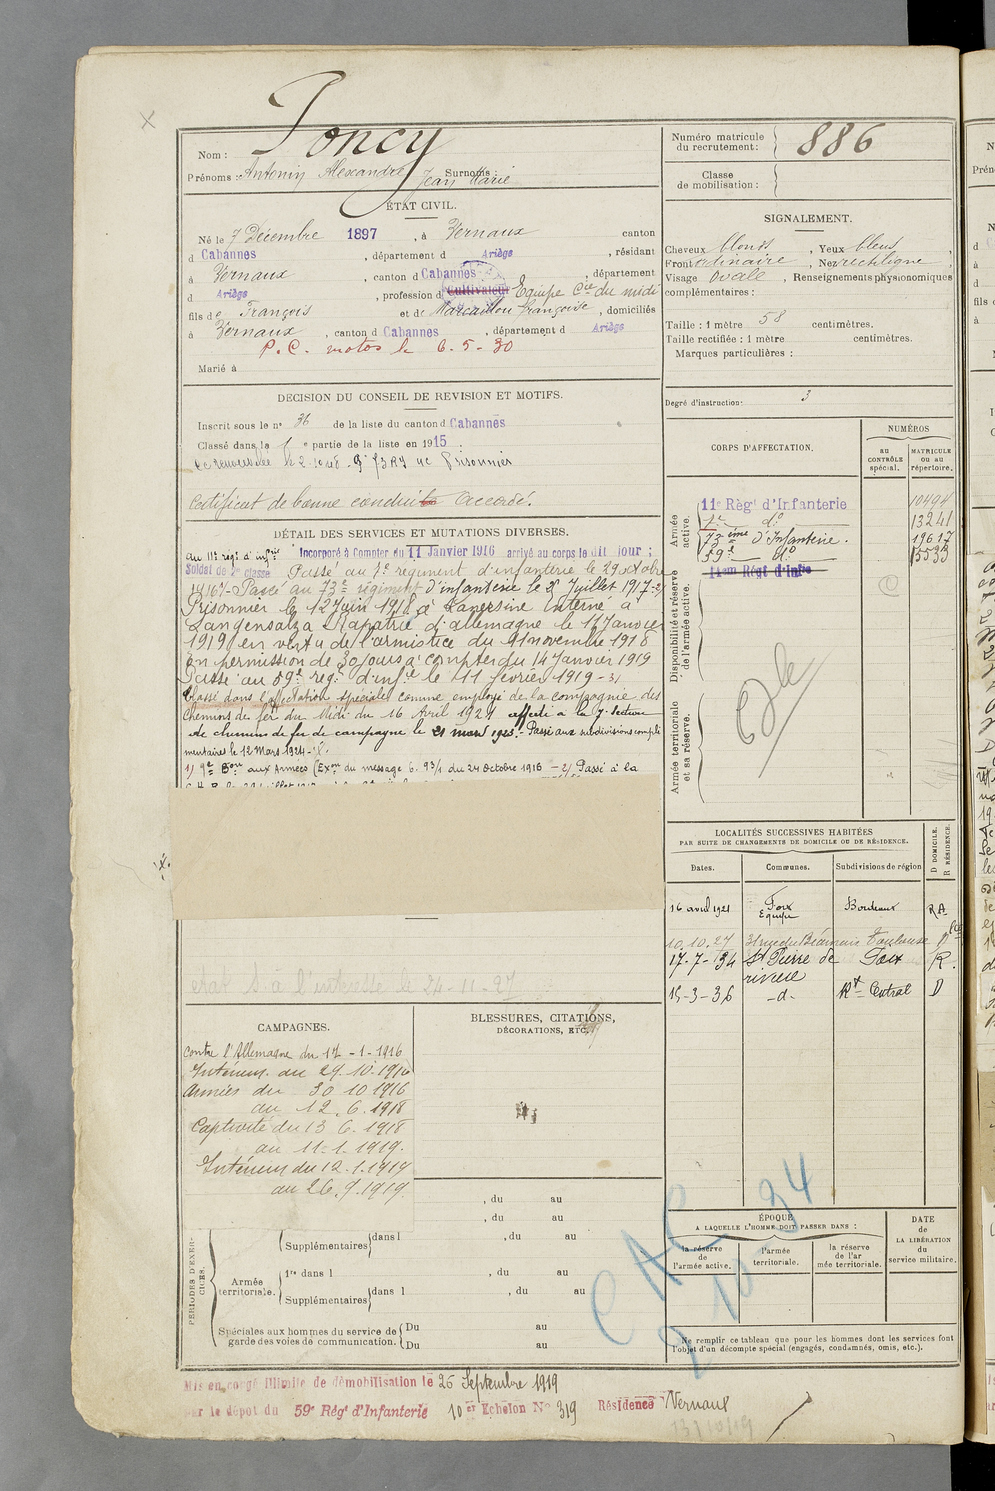 Nom : Joncy
Prénoms : Antonin Alexandre Jean Marie Surnoms :
ÉTAT CIVIL.
Né le 7 Décembre 1897, à Vernaux canton
d Cabannes, département d Ariège, résidant
à Vernaux, canton d Cabannes, département
d Ariège, profession d Cultivateur Equipe Cie du midi
fils de François et de Marcaillou Françoise, domiciliés
à Vernaux, canton d Cabannes, département d Ariège
P.C. motos le 6-5-30
Marié à
DECISION DU CONSEIL DE REVISION ET MOTIFS.
Inscrit sous le n° 36 de la liste du canton d Cabannes
Classé dans la 1e partie de la liste en 1915.
Prisonnier
Certificat de bonne conduite Accordé.
DÉTAIL DES SERVICES ET MUTATIONS DIVERSES.
au 11e régt d'infrie Incorporé à Compter du 11 Janvier 1916 arrivé au corps le dit jour ;
Soldat de 2e classe Passé au 7e régiment d'infanterie le 29 octobre
1916 1)- Passé au 73e régiment d'infanterie le 2 Juillet 1917-2)
Prisonnier le 12 Juin 1918 à interné à
Langensalza Rapatrié d'allemagne le 11 Janvier
1919 en vertu de l'armistice du 11 novembre 1918
En permission de 30 jours à compter du 14 Janvier 1919
Passé au 59e régt d'infie le 11 février 1919-3)
Classé dans l'affectation spéciale comme employé de la compagnie des
chemins de fer du Midi du 16 Avril 1921 affecté à la 7e section
de chemins de fer de campagne le 21 mars 1923.- Passé aux subdivisions complé
mentaires le 12 Mars 1924-
1) 9e Bon aux Armées (Exon du message 6.93/1 du 24 octobre 1916 -2) Passé à la
état S. à l'interessé le 24-11-27
CAMPAGNES.
Contre l'Allemagne du 12-1-1916
Intérieur au 29.10.1916
Armées du 30 10 1916
au 12.6.1918
Captivité du 13 6.1918
au 11-1-1919.
Intérieur du 12.1.1919
au 26.9.1919
BLESSURES, CITATIONS,
DÉCORATIONS, ETC.
, du au
, du au
PÉRIODES D'EXERCICES.
Supplémentaires dans l , du au
Armée territoriale. 1re dans l , du au
Supplémentaires dans l , du au
Spéciales aux hommes du service de garde des voies de communication. Du au
Du au
Mis en congé illimité de démobilisation le 26 Septembre 1919
par le dépôt du 59e Régt d'Infanterie 10er Echelon N° 319 Résidence Vernaux
13/10/19
Numéro matricule
du recrutement : 886
Classe
de mobilisation :
SIGNALEMENT.
Cheveux blonds, Yeux bleus,
Front ordinaire, Nez rectiligne,
Visage ovale, Renseignements physionomiques
complémentaires :
Taille : 1 mètre 58 centimètres.
Taille rectifiée : 1 mètre centimètres.
Marques particulières :
Degré d'instruction: 3
CORPS D'AFFECTATION.
NUMÉROS
au CONTRÔLE spécial.
MATRICULE ou au répertoire.
Armée active.
11e Régt d'Infanterie 10494
7e do 13241
73ième d'Infanterie. 19617
59e do 15533
14em Régt d'Infie
Disponibilité et réserve de l'armée active.
Armée territoriale et sa réserve.
LOCALITÉS SUCCESSIVES HABITÉES
PAR SUITE DE CHANGEMENTS DE DOMICILE OU DE RÉSIDENCE.
Dates. Communes. Subdivisions de région D DOMICILE. R RÉSIDENCE.
16 avril 1921 Foix Equipe Bordeaux RA
10.10.27 31 rue du Béarnais Toulouse D
17-7-34 St Pierre de rivière Foix R.
15-3-36 -d- Rt Central D
ÉPOQUE
A LAQUELLE L'HOMME DOIT PASSER DANS :
la réserve de l'armée active.
l'armée territoriale.
la réserve de l'armée territoriale.
DATE de LA LIBÉRATION du service militaire.
CAC
2 10-34
Ne remplir ce tableau que pour les hommes dont les services font
l'objet d'un décompte spécial (engagés, condamnés, omis, etc.).